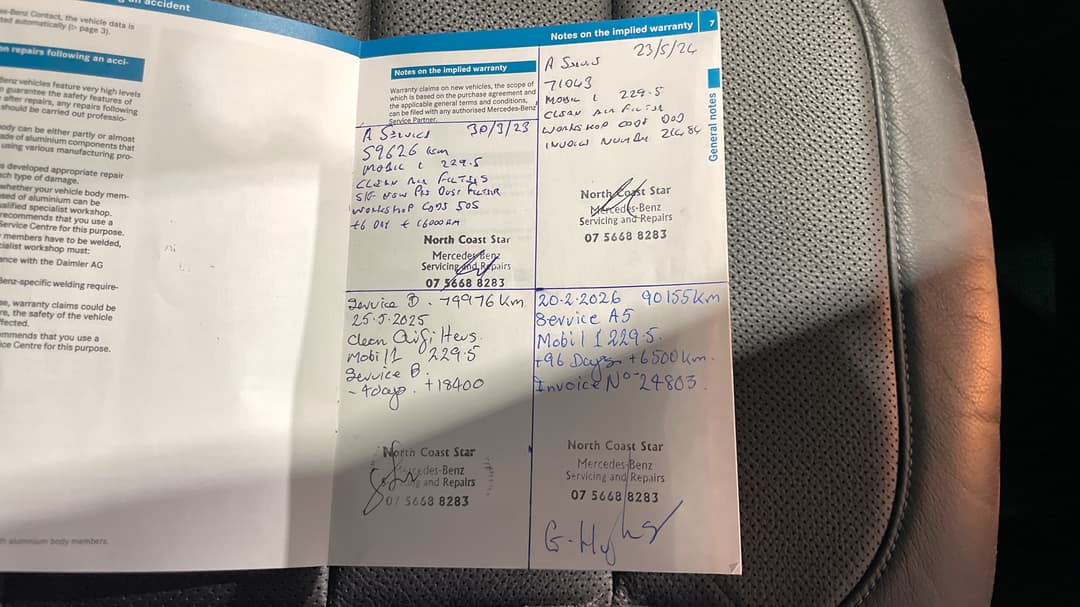 g an accident
es-Benz Contact, the vehicle data is
ted automatically (▷ page 3).
on repairs following an acci-
Benz vehicles feature very high levels
o guarantee the safety features of
after repairs, any repairs following
should be carried out professio-
ody can be either partly or almost
ade of aluminium components that
using various manufacturing pro-
s developed appropriate repair
ch type of damage.
whether your vehicle body mem-
sed of aluminium can be
alified specialist workshop.
recommends that you use a
Service Centre for this purpose.
members have to be welded,
cialist workshop must:
ance with the Daimler AG
Benz-specific welding require-
se, warranty claims could be
re, the safety of the vehicle
fected.
mmends that you use a
ice Centre for this purpose.
th aluminium body members.
Notes on the implied warranty 7
General notes
Notes on the implied warranty
Warranty claims on new vehicles, the scope of
which is based on the purchase agreement and
the applicable general terms and conditions,
can be filed with any authorised Mercedes-Benz
Service Partner.
A Service 30/3/23
59626 km
Mobil 1 229.5
Clean Air Filters
Dust Filter
Workshop Code 505
North Coast Star
Mercedes-Benz
Servicing and Repairs
07 5668 8283
23/5/24
A Service
71043
Mobil 1 229.5
Clean Air Filter
Workshop Code
Invoice Number
North Coast Star
Mercedes-Benz
Servicing and Repairs
07 5668 8283
Service B - 79976 km
25.5.2025
Clean Air filters.
Mobil 1 229.5
Service B.
- 4 days. +18400
North Coast Star
Mercedes-Benz
Servicing and Repairs
07 5668 8283
20.2.2026 90155km
Service A5
Mobil 1 229.5.
+96 Days +6500km.
Invoice No- 24803.
North Coast Star
Mercedes-Benz
Servicing and Repairs
07 5668 8283